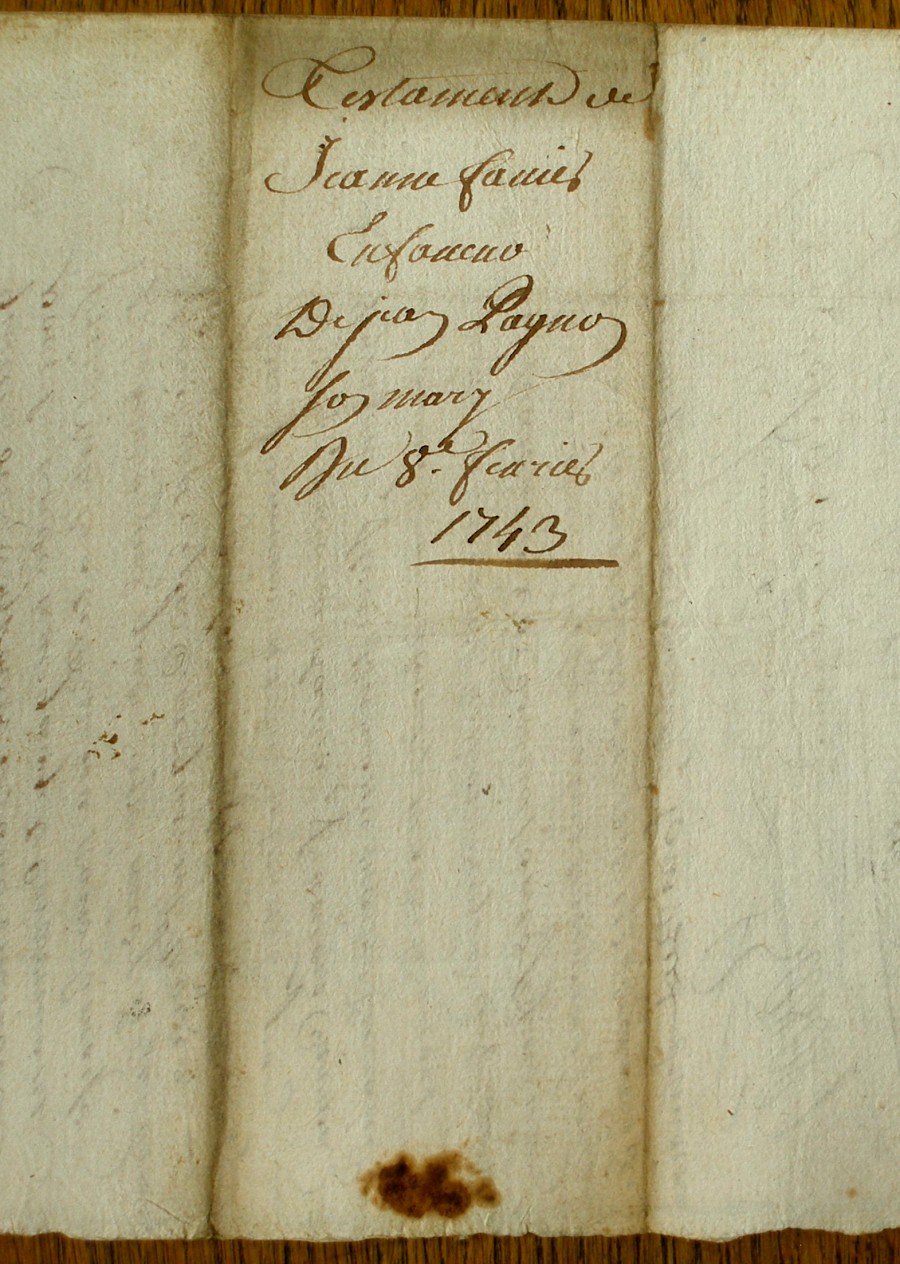 Testament de
Jeanne
En faveur
De jean Pagnon
son mary
Du 8e. fevrier
1743